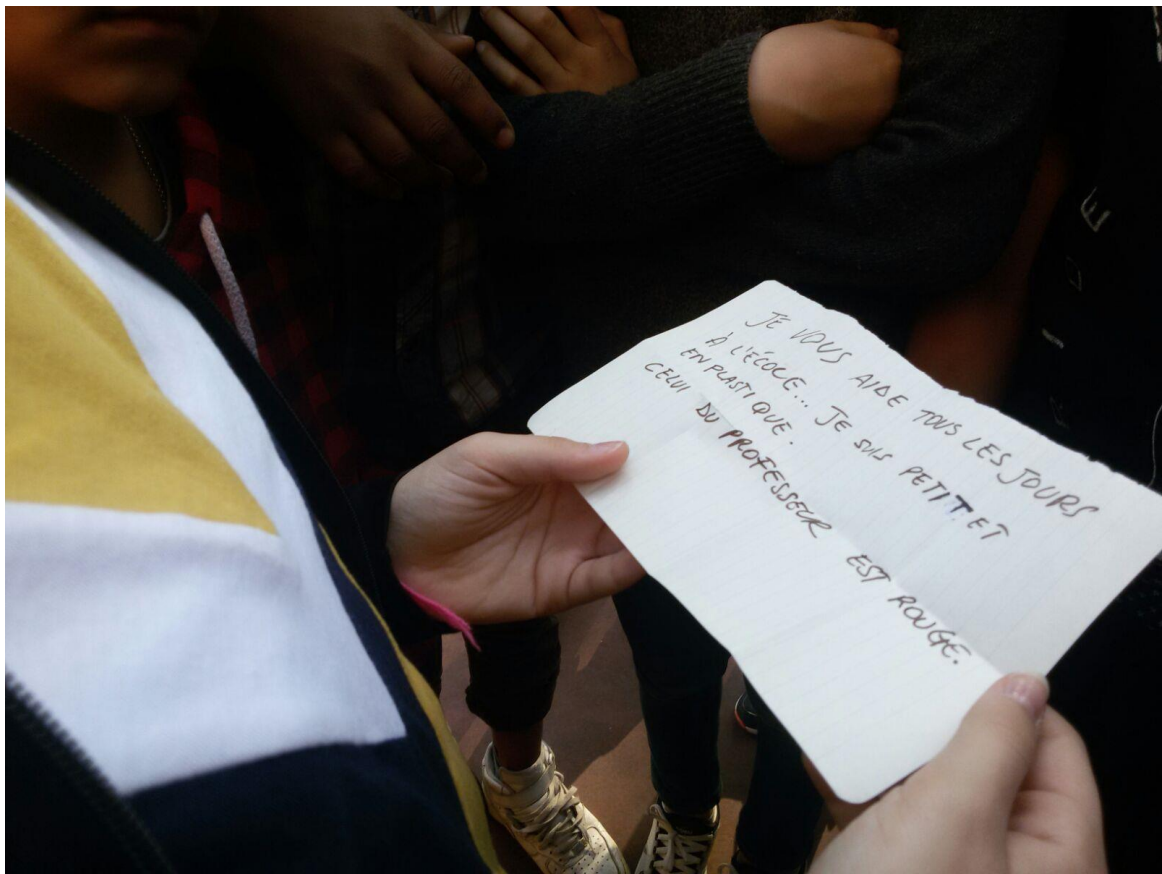 JE VOUS AIDE TOUS LES JOURS
À L'ÉCOLE... JE SUIS PETIT ET
EN PLASTIQUE.
CELUI DU PROFESSEUR EST ROUGE.